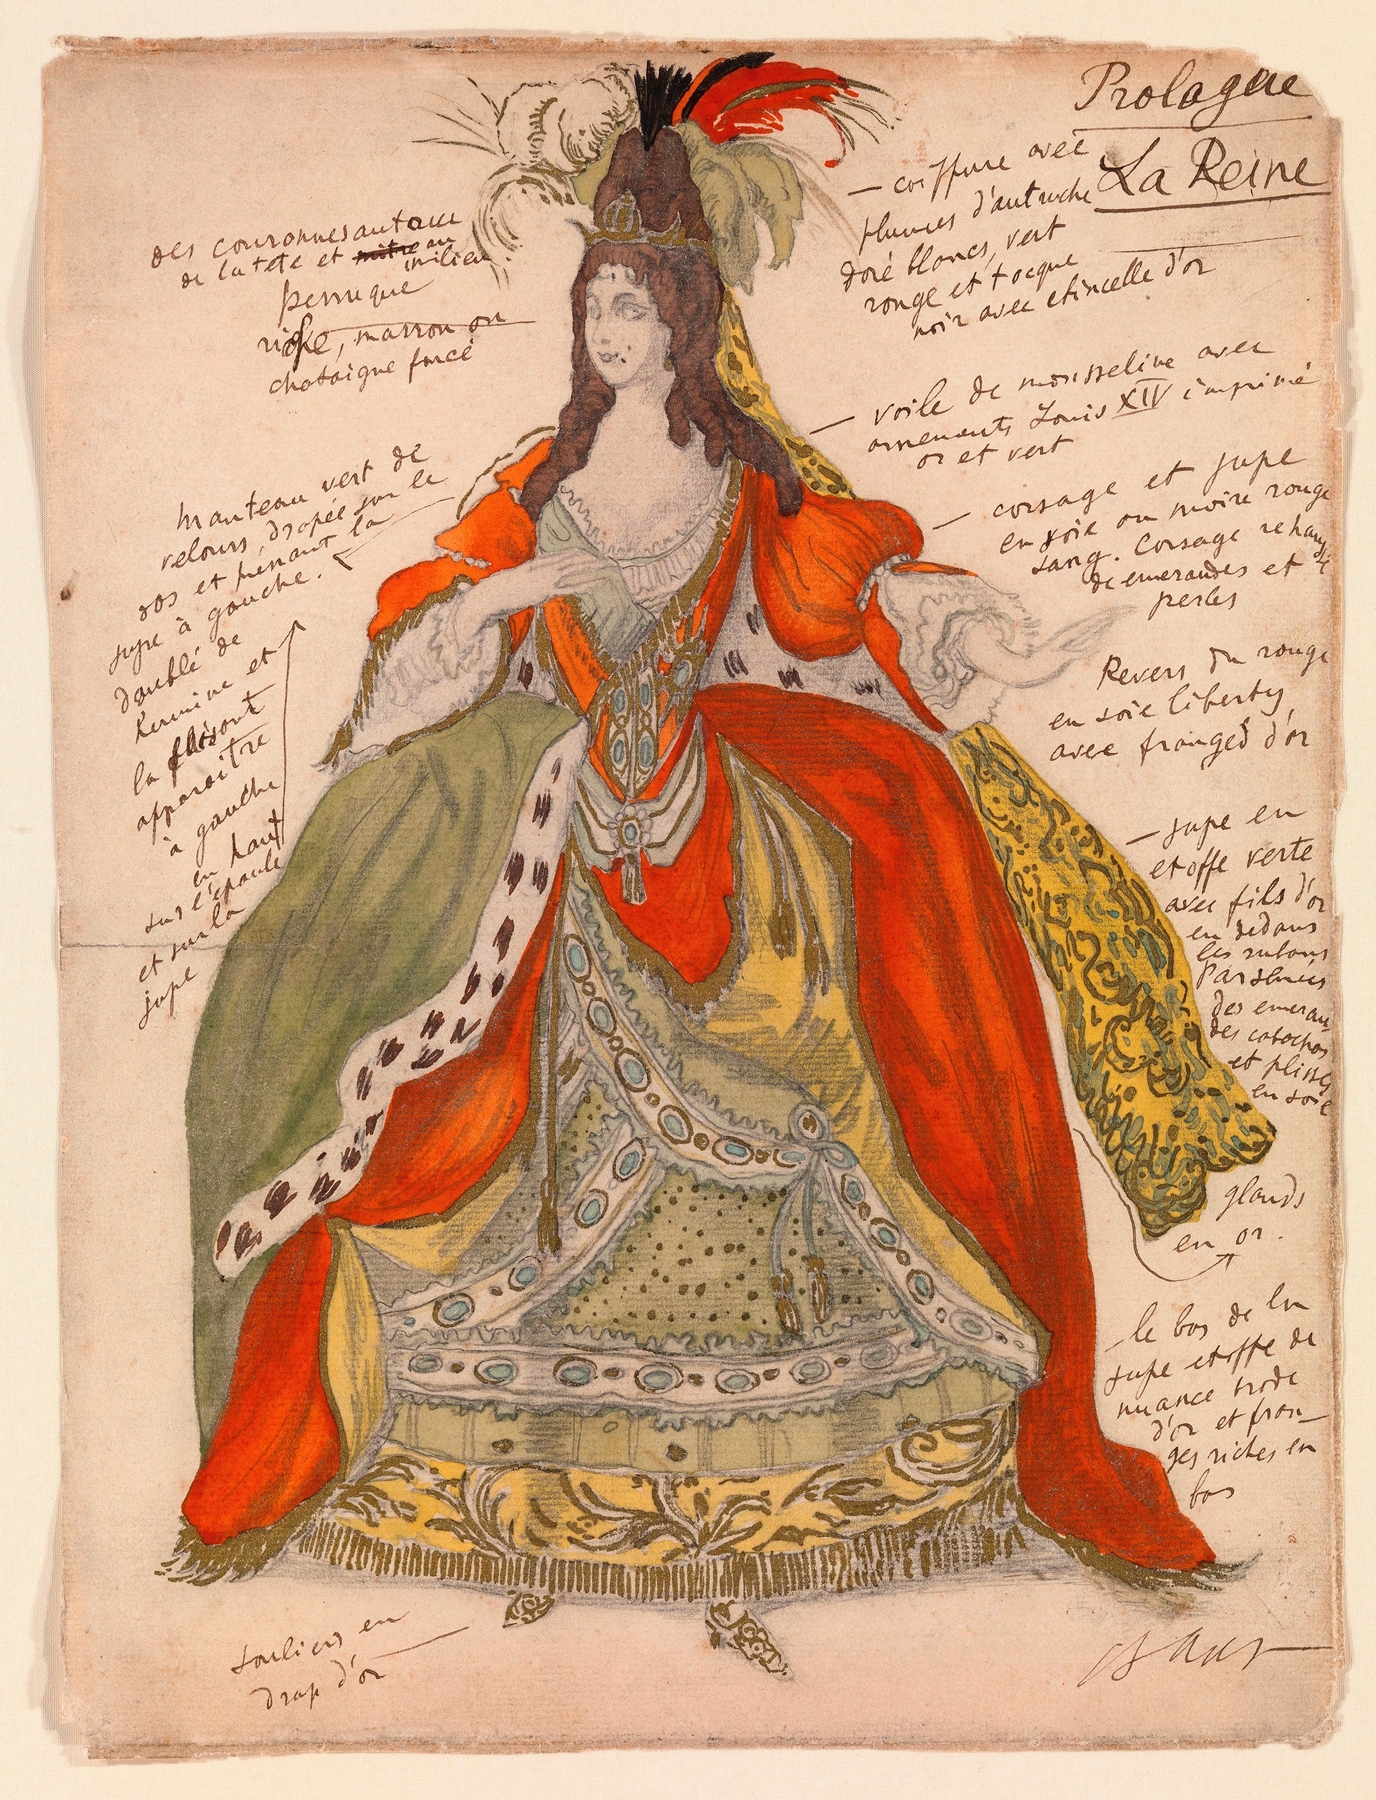 Prologue
La Reine
— coiffure avec
plumes d'autruche
doré blancs, vert
rouge et toque
noir avec etincelle d'or
des couronnes autour
de la tête et mitre au
milieu
perruque
riche, marron ou
chataigne foncé
— voile de mousseline avec
ornements Louis XIV imprimé
or et vert
— corsage et jupe
en soie ou moire rouge
sang. Corsage rehaussé
de emeraudes et
perles
manteau vert de
velours, drapée sur le
dos et prenant la
jupe à gauche.
doublé de
hermine et
la faisant
apparaitre
à gauche
en haut
sur l'épaule
et sur la
jupe
Revers du rouge
en soie liberty,
avec franges d'or
— jupe en
etoffe verte
avec fils d'or
en dedans
les rubans
parsemés
des emerau-
des cabochos
et plissés
en soie
glands
en or.
— le bas de la
jupe etoffe de
nuance brode
d'or et fran-
ges riches en
bas
souliers en
drap d'or
Bakst